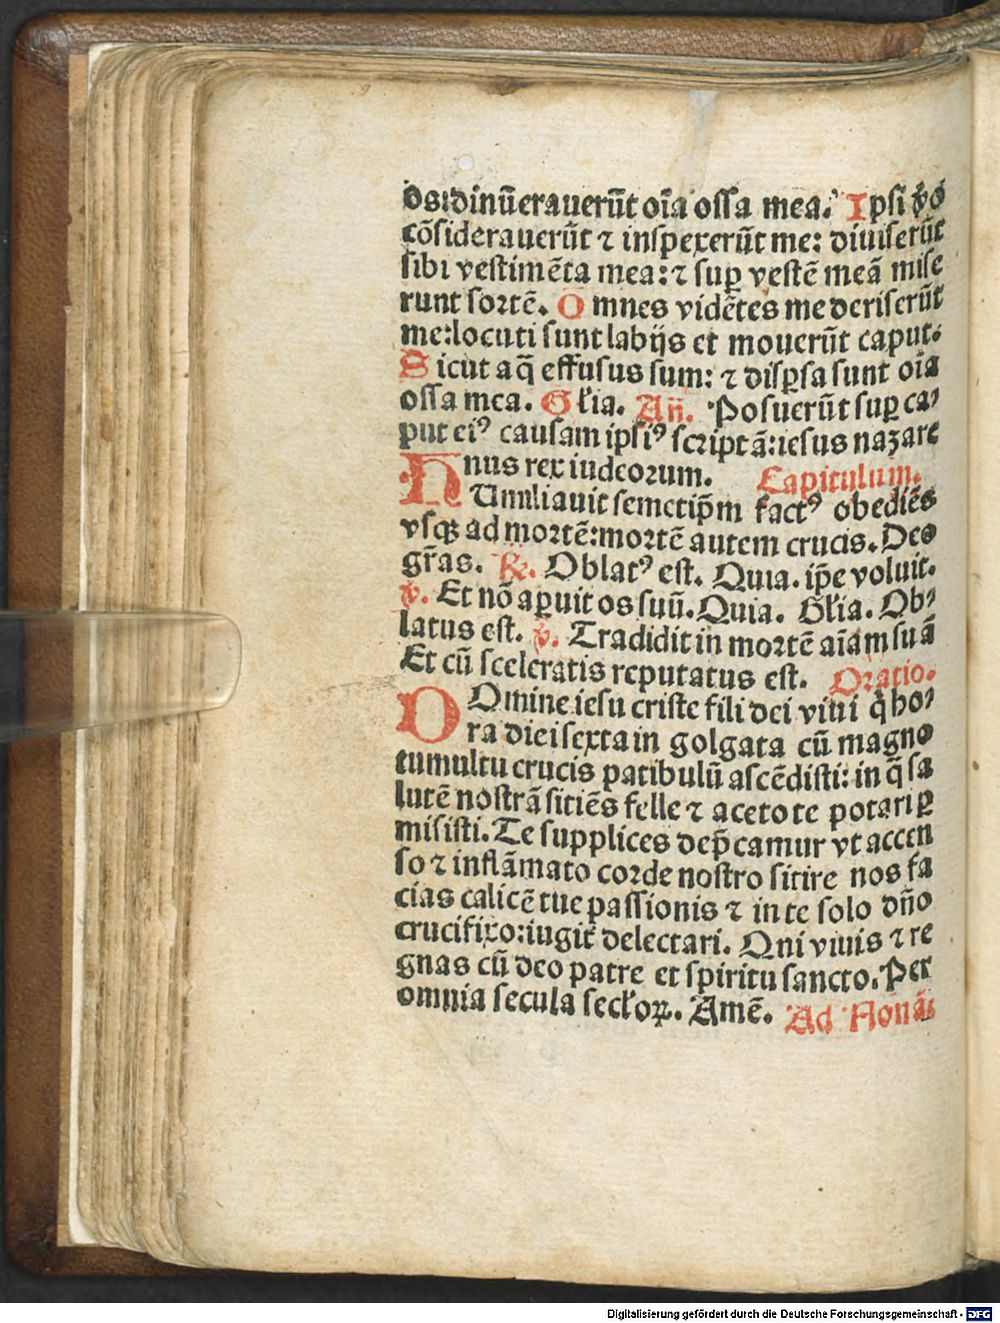 os:dinūerauerūt oīa ossa mea. Ipsi v̄o
cōsiderauerūt ⁊ inspexerūt me: diuiserūt
sibi vestimēta mea: ⁊ suꝑ vestē meā mise
runt sortē. Omnes vidētes me deriserūt
me: locuti sunt labijs et mouerūt caput.
Sicut aq̄ effusus sum: ⁊ disꝑsa sunt oīa
ossa mea. Gl̄ia. An̄. Posuerūt suꝑ ca⸗
put eiꝰ causam ipsiꝰ scriptā: iesus nazare
nus rex iudeorum. Capitulum.
HUmiliauit semetip̄m factꝰ obediēs
vsqꝫ ad mortē: mortē autem crucis. Deo
gr̄as. ℟. Oblatꝰ est. Quia. ip̄e voluit.
℣. Et nō aꝑuit os suū. Quia. Gl̄ia. Ob⸗
latus est. ℣. Tradidit in mortē aīam suā
Et cū sceleratis reputatus est. Oratio.
DOmine iesu criste fili dei viui q̄ ho⸗
ra diei sexta in golgata cū magno
tumultu crucis patibulū ascēdisti: in q̄ sa
lutē nostrā sitiēs felle ⁊ aceto te potari ꝑ
misisti. Te supplices dep̄camur vt accen
so ⁊ inflāmato corde nostro sitire nos fa
cias calicē tue passionis ⁊ in te solo dn̄o
crucifixo: iugit̄ delectari. Qui viuis ⁊ re
gnas cū deo patre et spiritu sancto. Per
omnia secula secl̄oꝝ. Amē. Ad Nonā.
Digitalisierung gefördert durch die Deutsche Forschungsgemeinschaft - DFG